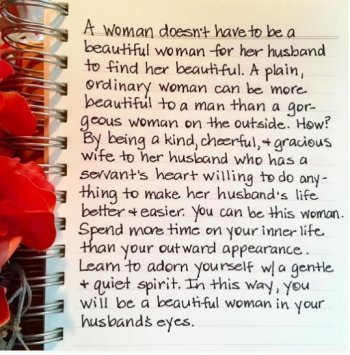 A woman doesn't have to be a
beautiful woman for her husband
to find her beautiful. A plain,
ordinary woman can be more
beautiful to a man than a gor-
geous woman on the outside. How?
By being a kind, cheerful, + gracious
wife to her husband who has a
servant's heart willing to do any-
thing to make her husband's life
better + easier. You can be this woman.
Spend more time on your inner life
than your outward appearance.
Learn to adorn yourself w/ a gentle
+ quiet spirit. In this way, you
will be a beautiful woman in your
husband's eyes.